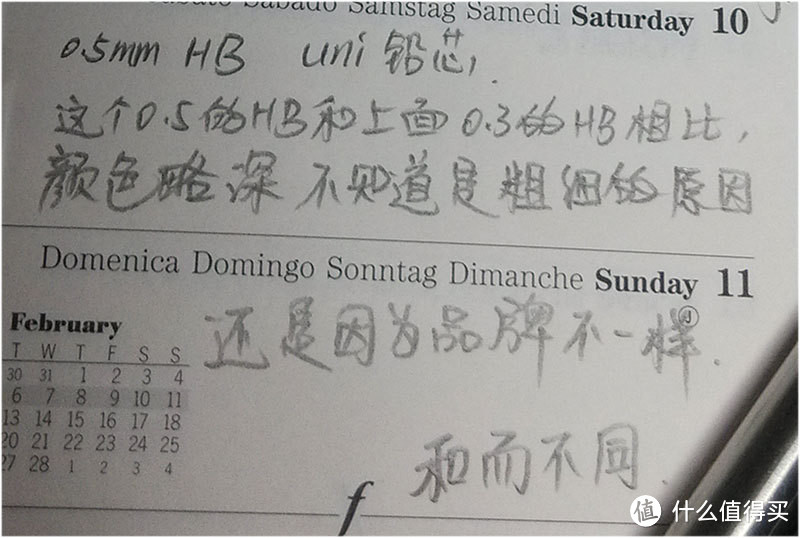 Sabado Samstag Samedi Saturday 10
0.5mm HB uni铅芯,
这个0.5的HB和上面0.3的HB相比,
颜色略深 不知道是粗细的原因
Domenica Domingo Sonntag Dimanche Sunday 11
还是因为品牌不一样.
和而不同.
February
T W T F S S
30 31 1 2 3 4
6 7 8 9 10 11
13 14 15 16 17 18
20 21 22 23 24 25
27 28 1 2 3 4
f
值 什么值得买